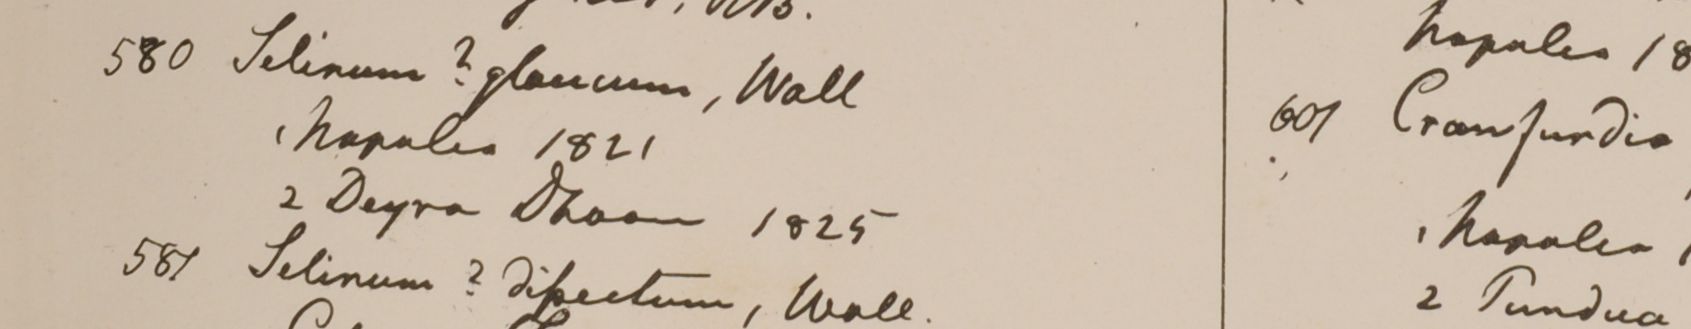 580 Selinum ? glaucum, Wall
1 Napalia 1821
2 Deyra Dhoon 1825
581 Selinum ? dissectum, Wall.
Napalia 18
601 Crawfurdia
1 Napalia 1
2 Tundua